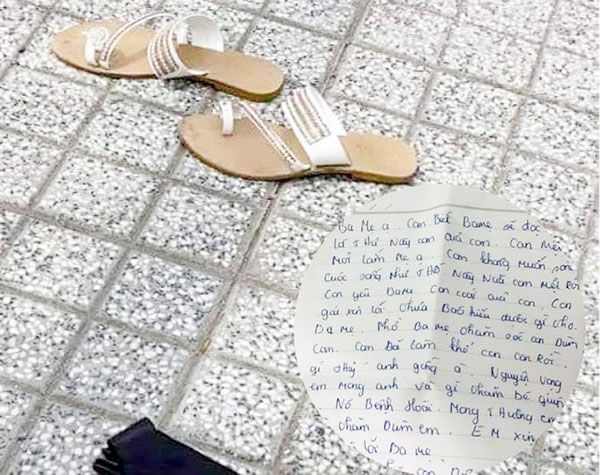 Ba Mẹ ạ. Con Biết Bame sẽ đọc
lá Thư Này của con. Con Mệt
Mỏi lắm Mẹ ạ. Con không muốn
cuộc sống Như Thế Này Nữa con Mệt Rồi
Con yêu BaMe. Con của con. Con
gái xin lỗi. chưa Báo hiếu được gì cho
Ba Mẹ. Nhờ Ba mẹ chăm sóc con Dùm
Con. Con Đã làm khổ con con Rồi.
gì Thuý - anh ạ. Nguyện Vọng
em Mong anh và gì chăm bé giùm
Nó Bệnh Hoài. Mong Thương em
chăm Dùm em. E M xin
lỗi Ba Me